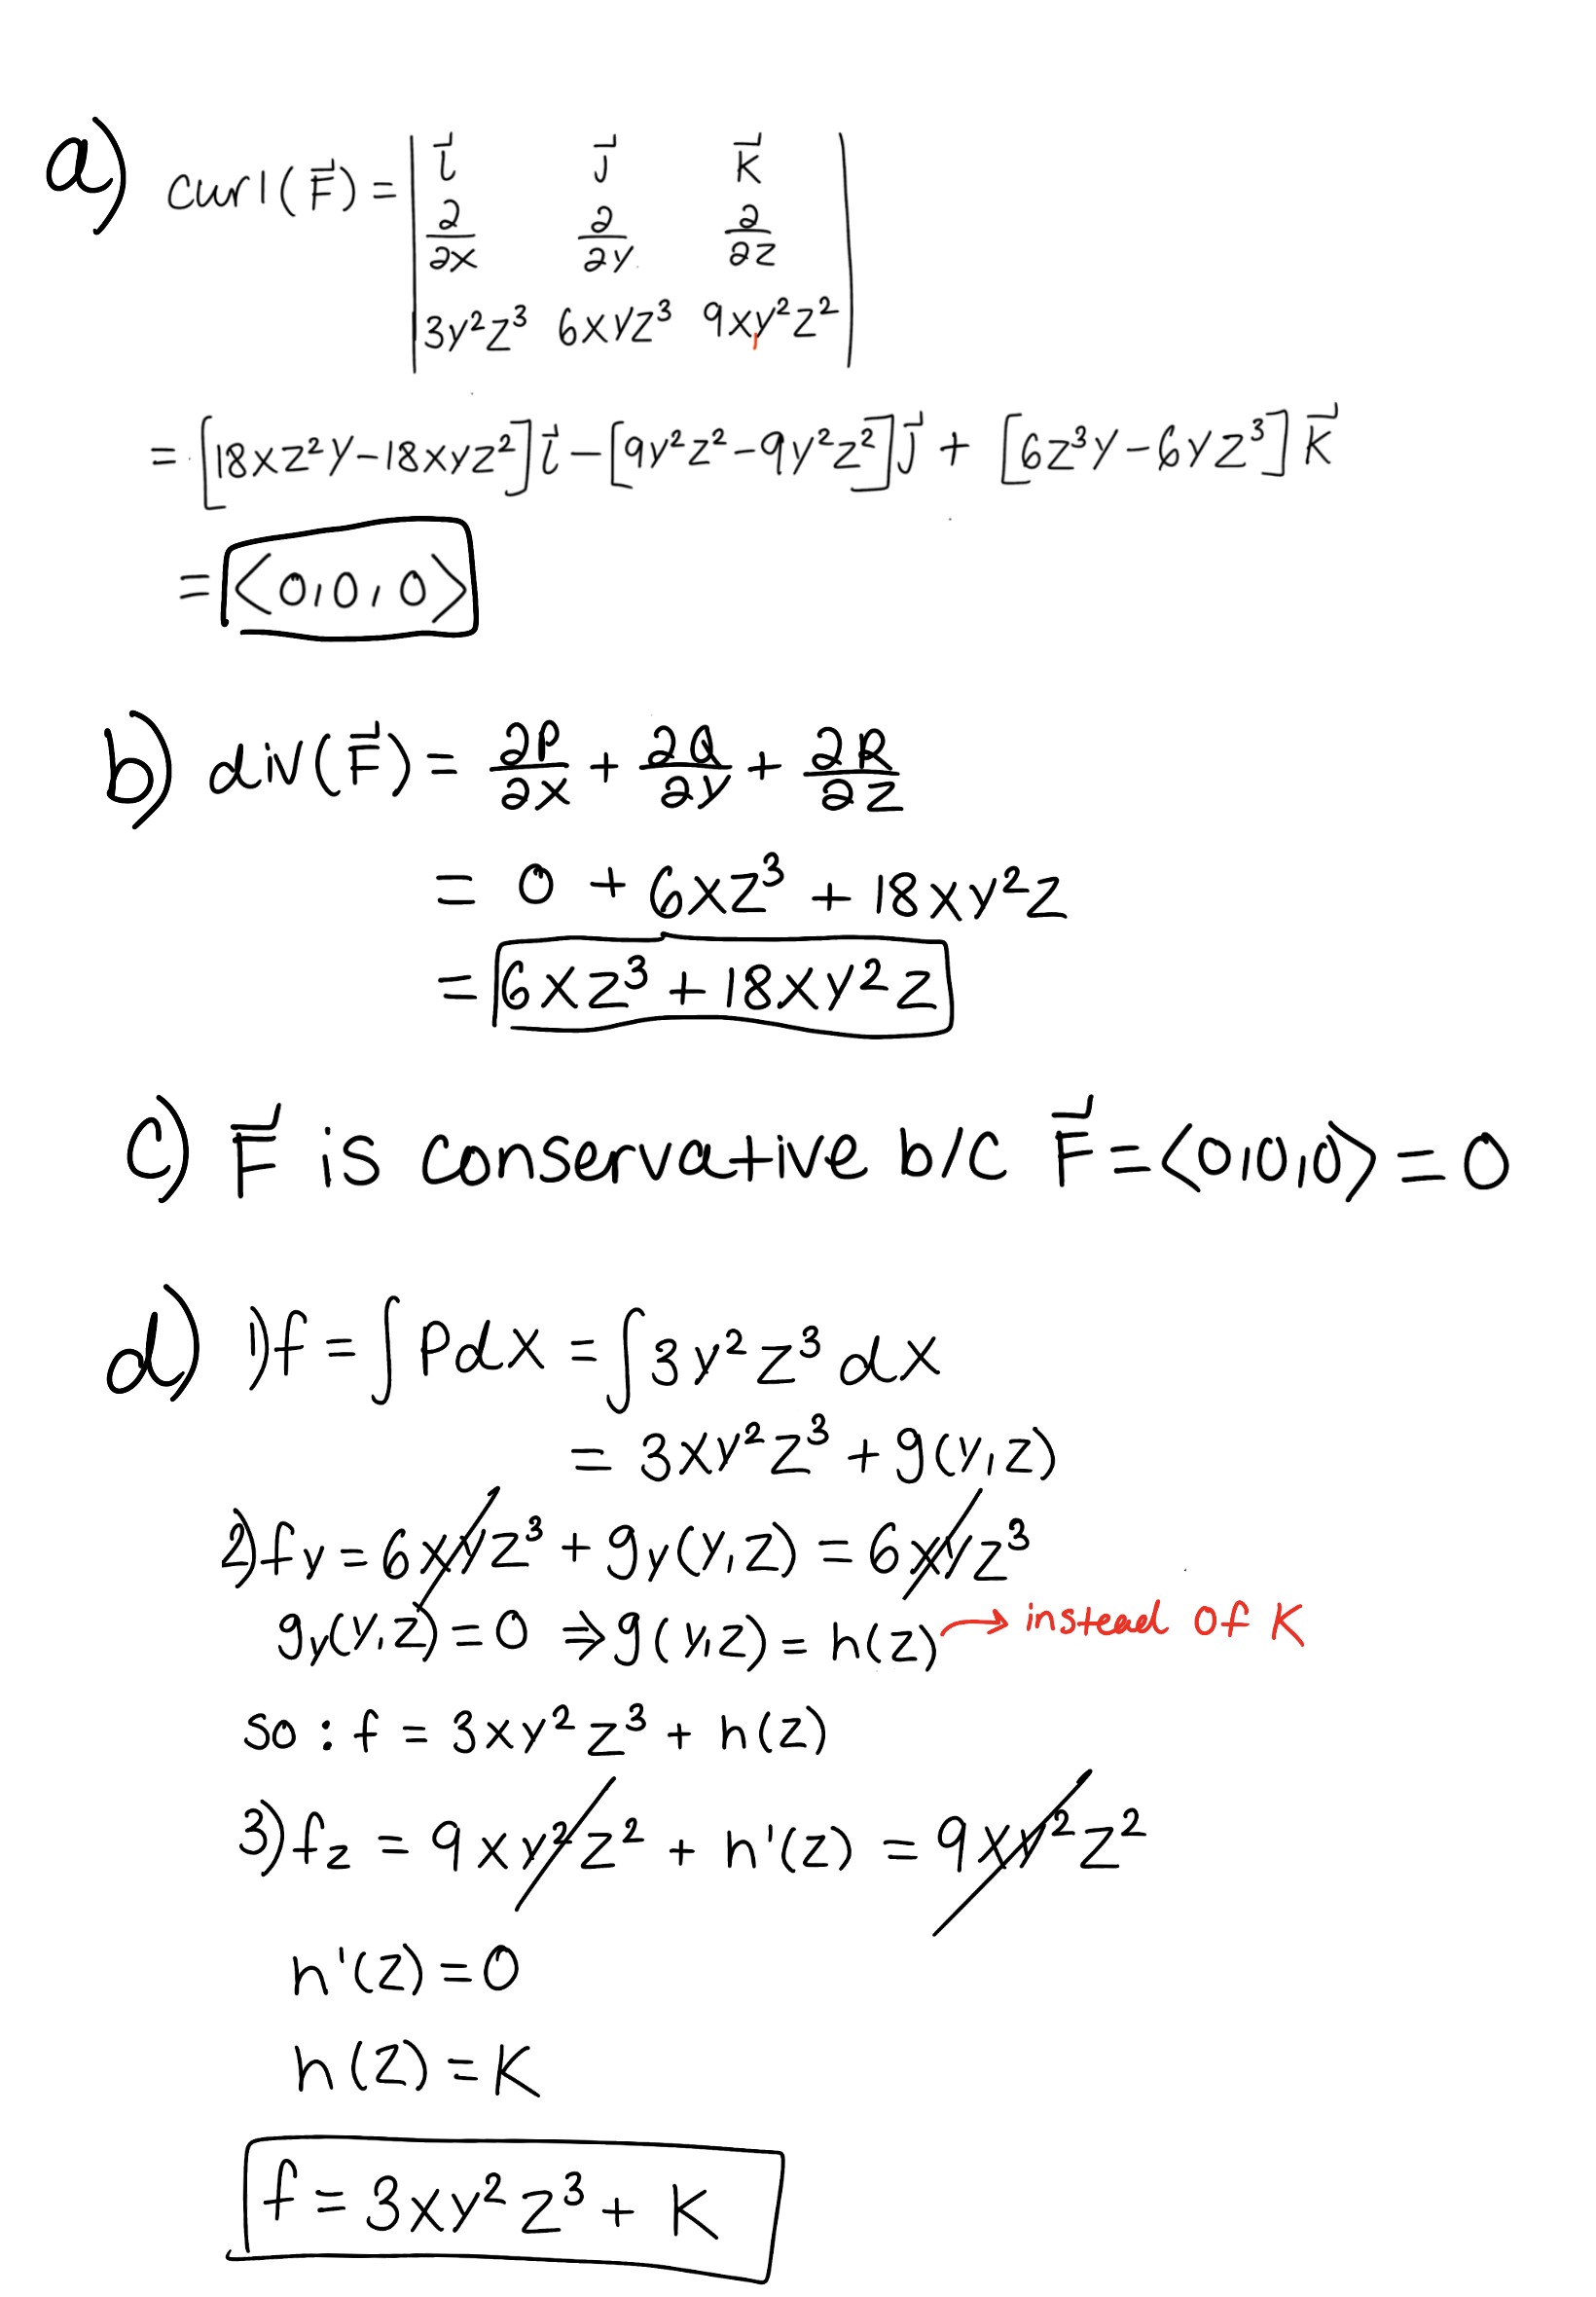 a) curl(F⃗) = | i⃗ j⃗ k⃗ |
| ∂/∂x ∂/∂y ∂/∂z |
| 3y²z³ 6xyz³ 9xy²z² |
= [18xz²y − 18xyz²] i⃗ − [9y²z² − 9y²z²] j⃗ + [6z³y − 6yz³] k⃗
= <0,0,0>
b) div(F⃗) = ∂P/∂x + ∂Q/∂y + ∂R/∂z
= 0 + 6xz³ + 18xy²z
= 6xz³ + 18xy²z
c) F⃗ is conservative b/c F⃗ = <0,0,0> = 0
d) 1) f = ∫ P dx = ∫ 3y²z³ dx
= 3xy²z³ + g(y,z)
2) fy = 6xyz³ + gy(y,z) = 6xyz³
gy(y,z) = 0 ⇒ g(y,z) = h(z) → instead of K
so : f = 3xy²z³ + h(z)
3) fz = 9xy²z² + h'(z) = 9xy²z²
h'(z) = 0
h(z) = K
f = 3xy²z³ + K